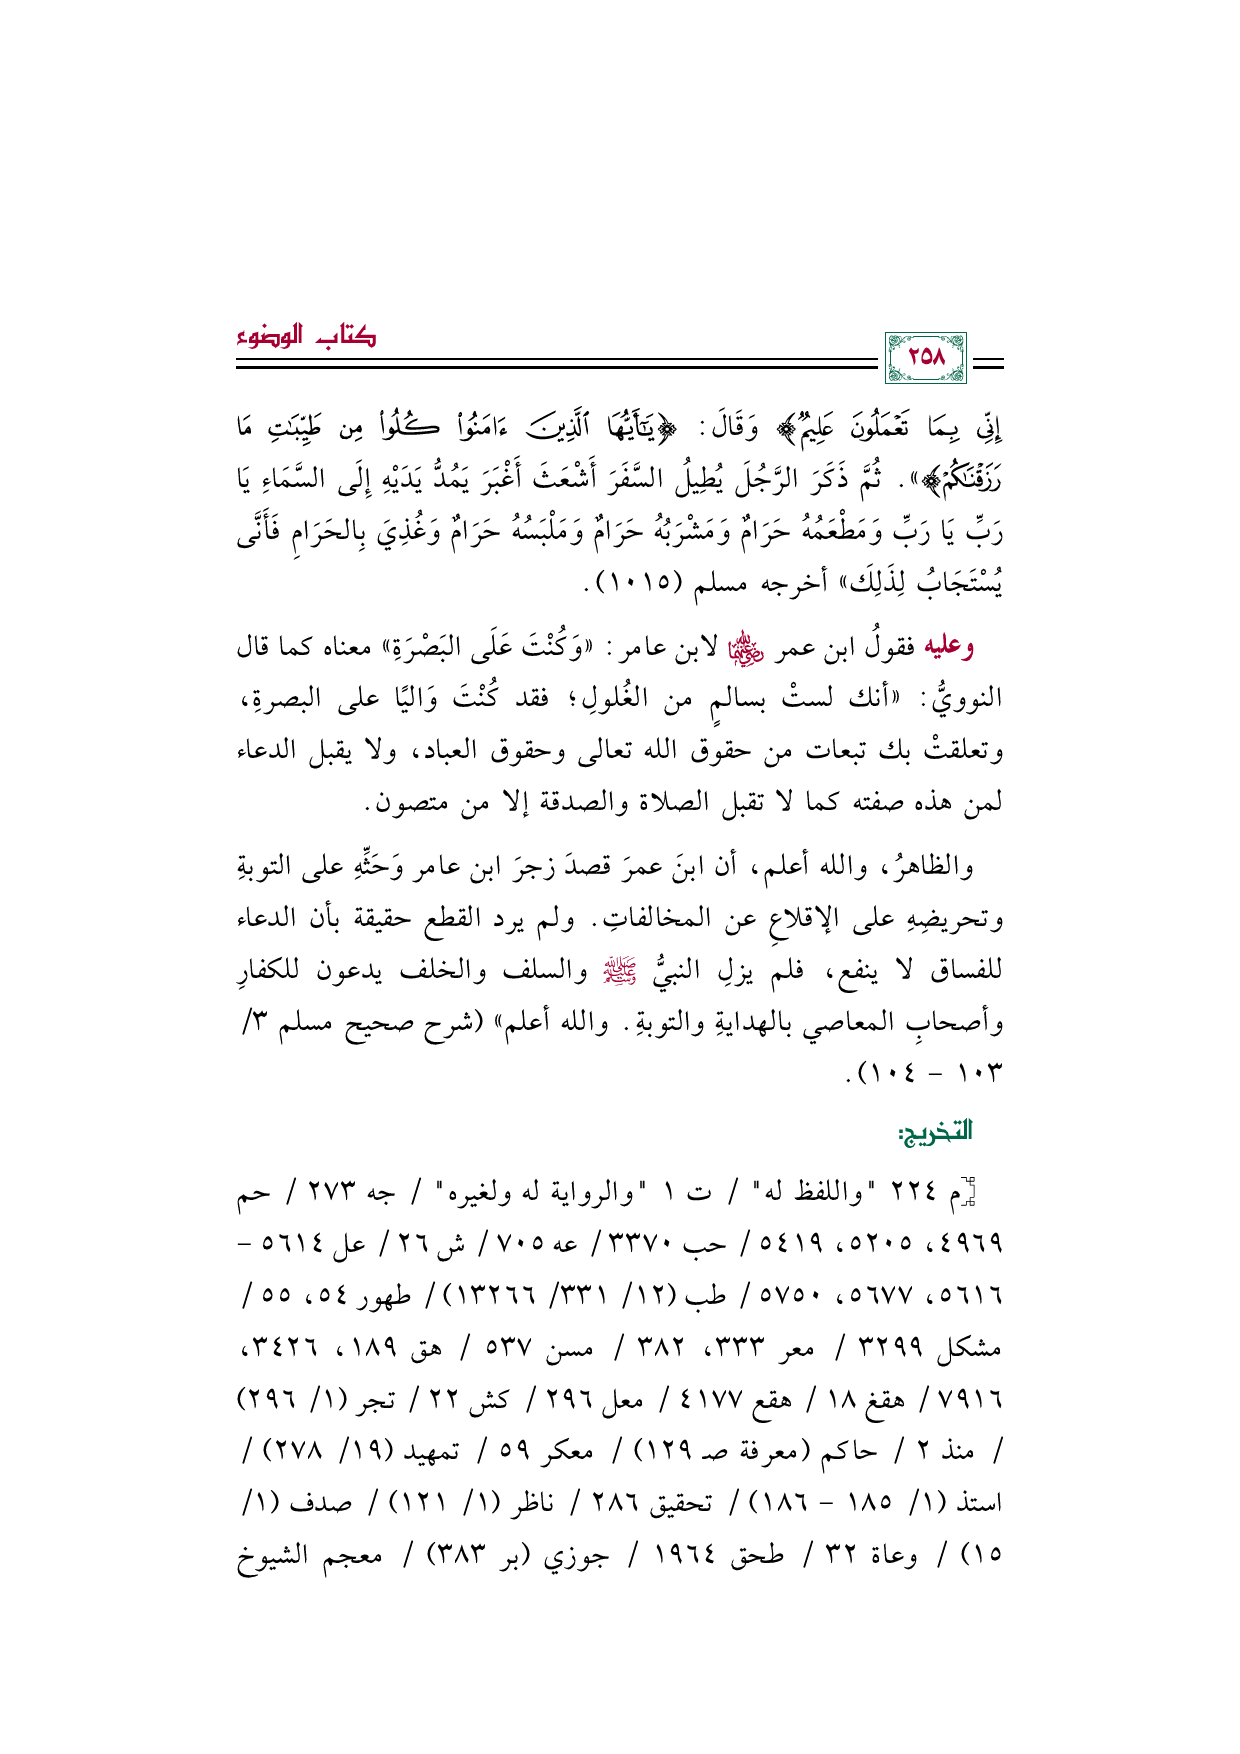 كتاب الوضوء
٢٥٨
إِنِّي بِمَا تَعْمَلُونَ عَلِيمٌ﴾ وَقَالَ: ﴿يَٰٓأَيُّهَا ٱلَّذِينَ ءَامَنُواْ كُلُواْ مِن طَيِّبَٰتِ مَا
رَزَقْنَٰكُمْ﴾». ثُمَّ ذَكَرَ الرَّجُلَ يُطِيلُ السَّفَرَ أَشْعَثَ أَغْبَرَ يَمُدُّ يَدَيْهِ إِلَى السَّمَاءِ يَا
رَبِّ يَا رَبِّ وَمَطْعَمُهُ حَرَامٌ وَمَشْرَبُهُ حَرَامٌ وَمَلْبَسُهُ حَرَامٌ وَغُذِيَ بِالحَرَامِ فَأَنَّى
يُسْتَجَابُ لِذَلِكَ» أخرجه مسلم (١٠١٥).
وعليه فقولُ ابن عمر رضي الله عنهما لابن عامر: «وَكُنْتَ عَلَى البَصْرَةِ» معناه كما قال
النوويُّ: «أنك لستْ بسالمٍ من الغُلولِ؛ فقد كُنْتَ وَاليًا على البصرةِ،
وتعلقتْ بك تبعات من حقوق الله تعالى وحقوق العباد، ولا يقبل الدعاء
لمن هذه صفته كما لا تقبل الصلاة والصدقة إلا من متصون.
والظاهرُ، والله أعلم، أن ابنَ عمرَ قصدَ زجرَ ابن عامر وَحَثِّهِ على التوبةِ
وتحريضِهِ على الإقلاعِ عن المخالفاتِ. ولم يرد القطع حقيقة بأن الدعاء
للفساق لا ينفع، فلم يزلِ النبيُّ ﷺ والسلف والخلف يدعون للكفارِ
وأصحابِ المعاصي بالهدايةِ والتوبةِ. والله أعلم» (شرح صحيح مسلم ٣/
١٠٣ – ١٠٤).
التخريج:
[م ٢٢٤ "واللفظ له" / ت ١ "والرواية له ولغيره" / جه ٢٧٣ / حم
٤٩٦٩، ٥٢٠٥، ٥٤١٩ / حب ٣٣٧٠ / عه ٧٠٥ / ش ٢٦ / عل ٥٦١٤ –
٥٦١٦، ٥٦٧٧، ٥٧٥٠ / طب (١٢/ ٣٣١/ ١٣٢٦٦) / طهور ٥٤، ٥٥ /
مشكل ٣٢٩٩ / معر ٣٣٣، ٣٨٢ / مسن ٥٣٧ / هق ١٨٩، ٣٤٢٦،
٧٩١٦ / هقغ ١٨ / هقع ٤١٧٧ / معل ٢٩٦ / كش ٢٢ / تجر (١/ ٢٩٦)
/ منذ ٢ / حاكم (معرفة صـ ١٢٩) / معكر ٥٩ / تمهيد (١٩/ ٢٧٨) /
استذ (١/ ١٨٥ – ١٨٦) / تحقيق ٢٨٦ / ناظر (١/ ١٢١) / صدف (١/
١٥) / وعاة ٣٢ / طحق ١٩٦٤ / جوزي (بر ٣٨٣) / معجم الشيوخ